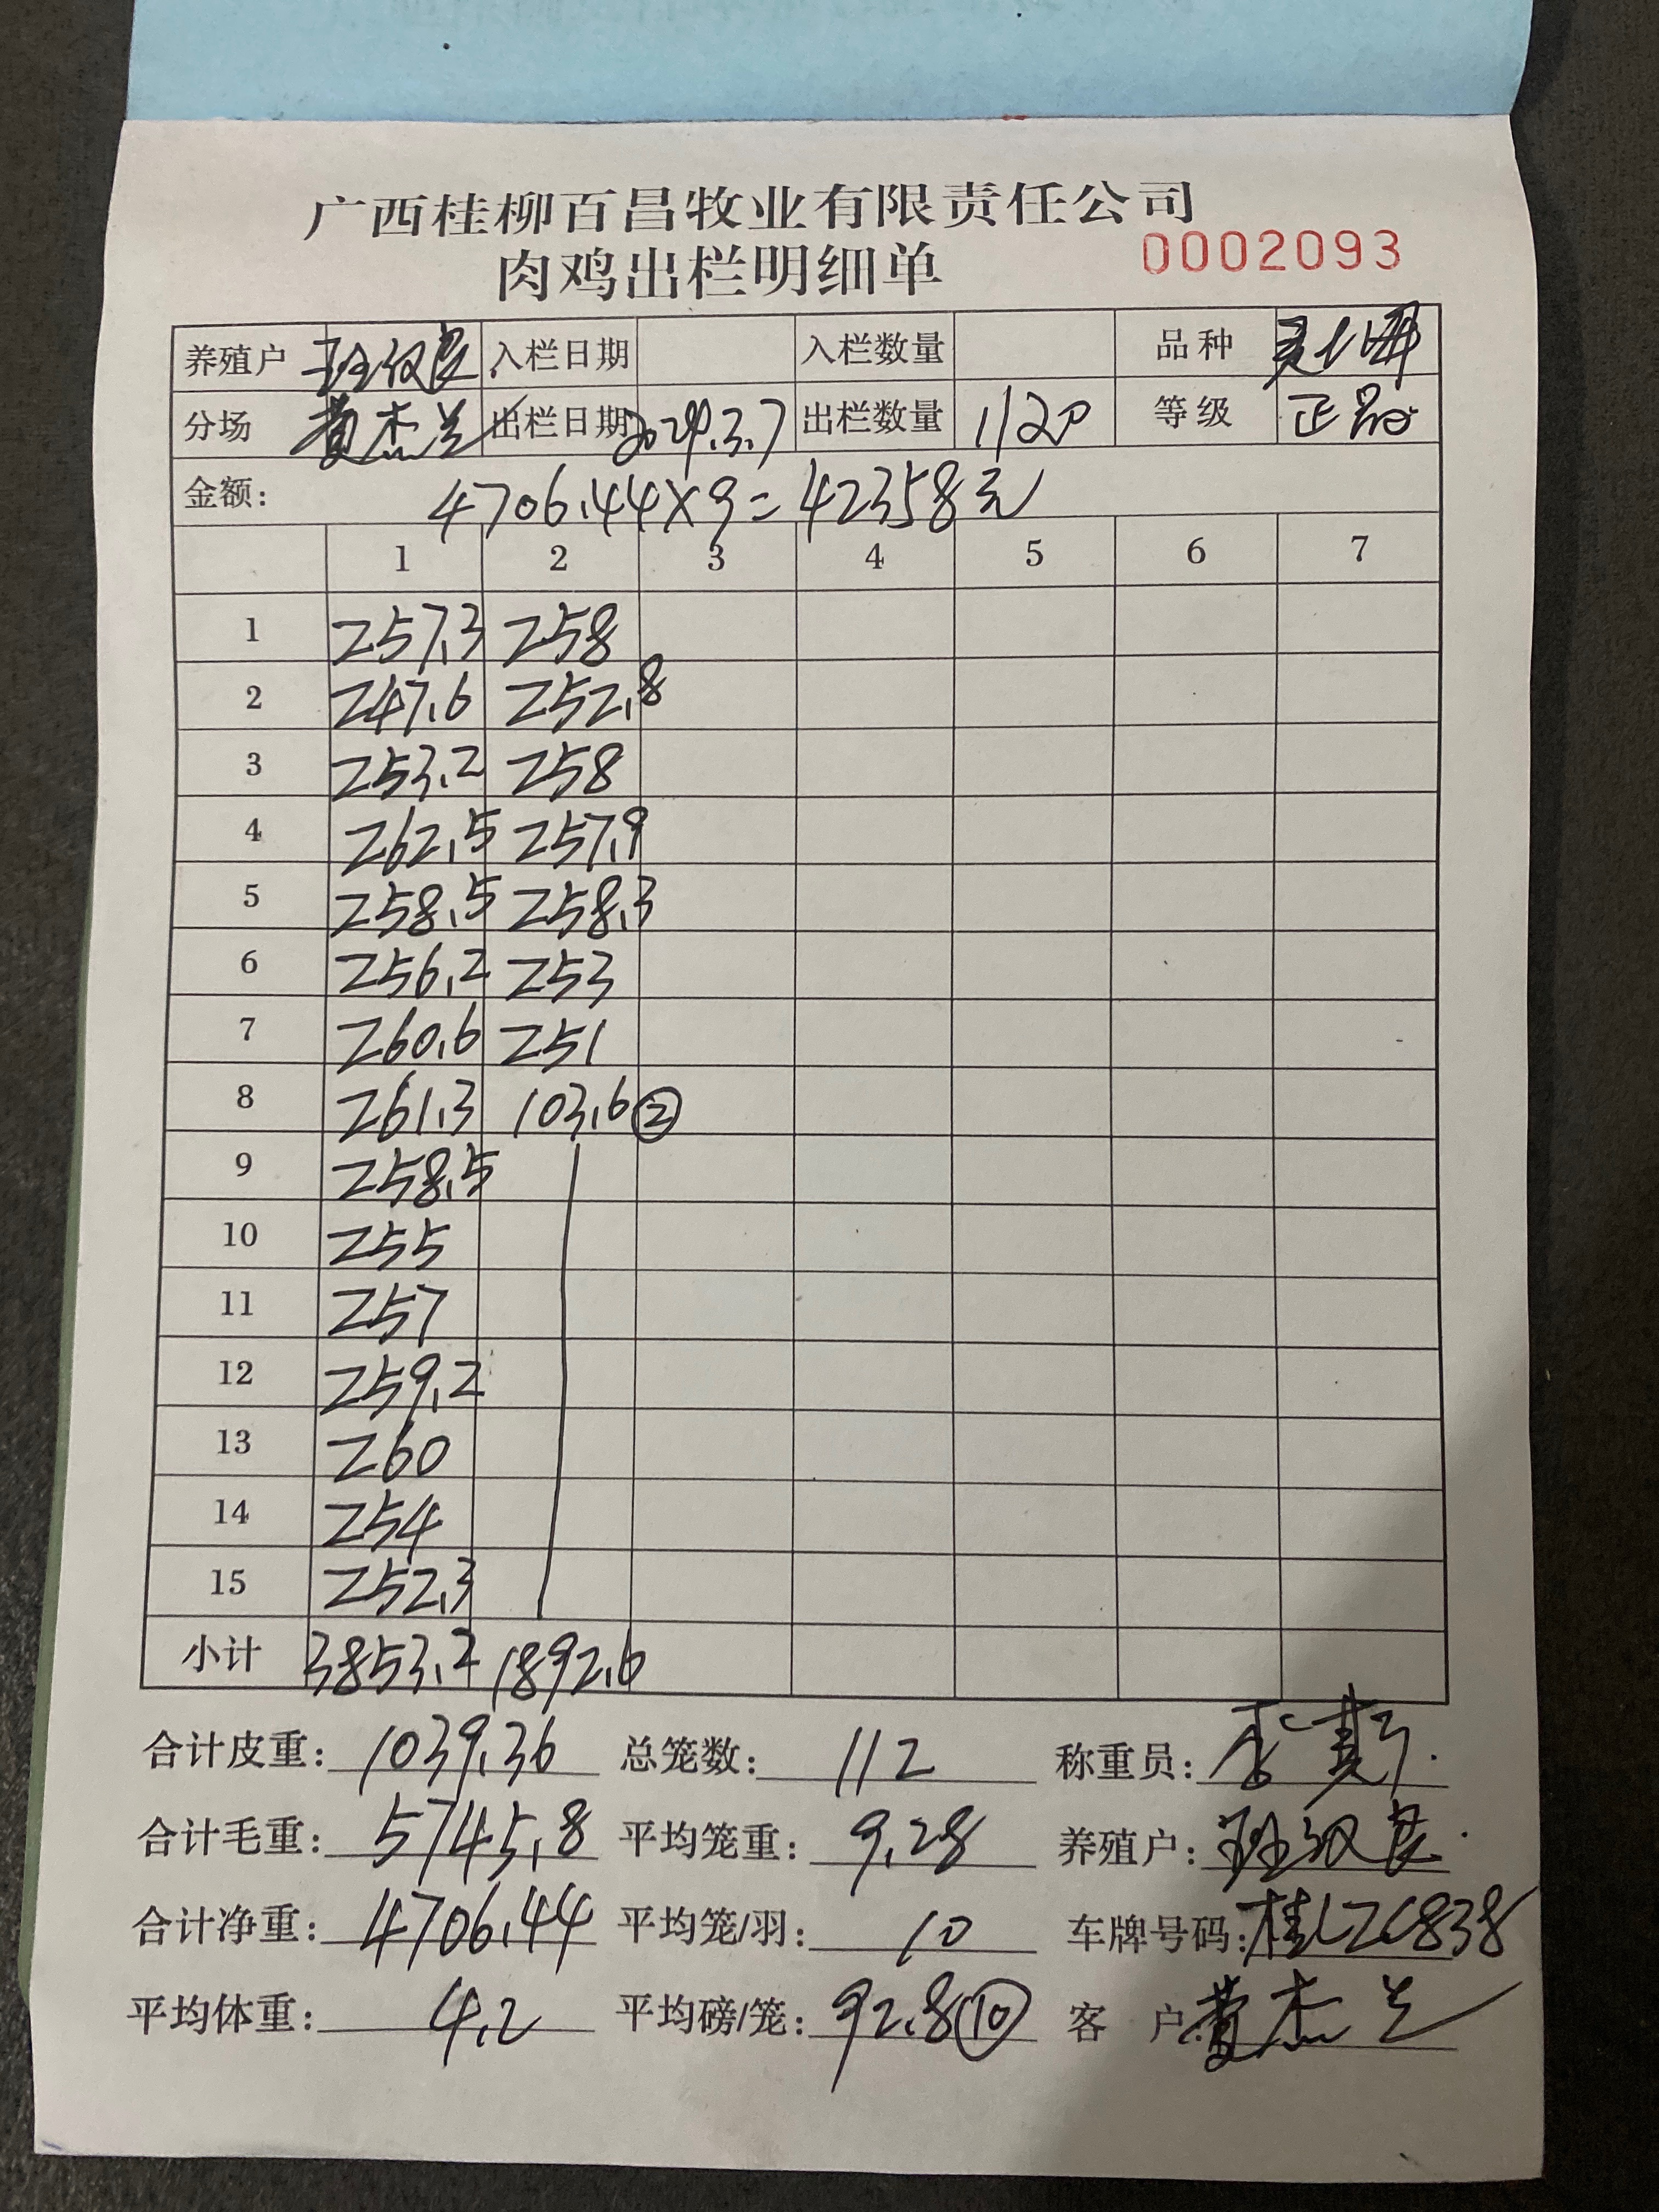 广西桂柳百昌牧业有限责任公司
肉鸡出栏明细单 0002093
养殖户 入栏日期 入栏数量 品种
分场 黄杰兰 出栏日期 2024.3.7 出栏数量 1120 等级 正品
金额: 4706.44×9=42358元
1 2 3 4 5 6 7
1 257.3 258
2 247.6 252.8
3 253.2 258
4 262.5 257.9
5 258.5 258.3
6 256.2 253
7 260.6 251
8 261.3 103.6②
9 258.5
10 255
11 257
12 259.2
13 260
14 254
15 252.3
小计 3853.2 1892.6
合计皮重: 1039.36 总笼数: 112 称重员: 李
合计毛重: 5745.8 平均笼重: 9.28 养殖户:
合计净重: 4706.44 平均笼/羽: 10 车牌号码: 桂LZC838
平均体重: 4.2 平均磅/笼: 92.8⑩ 客户: 黄杰兰